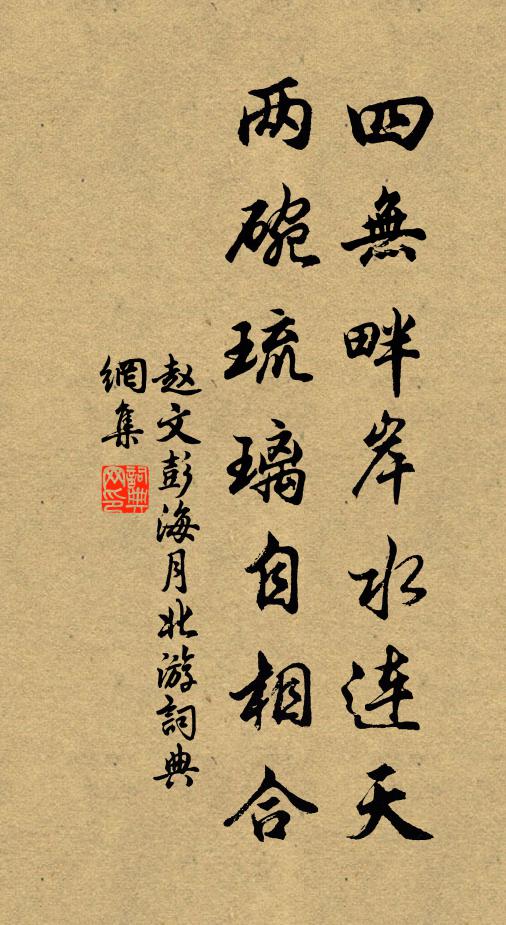 四無畔岸水連天
两碗琉璃自相合
赵文彭海月北游詞典
網集
詞典
网印